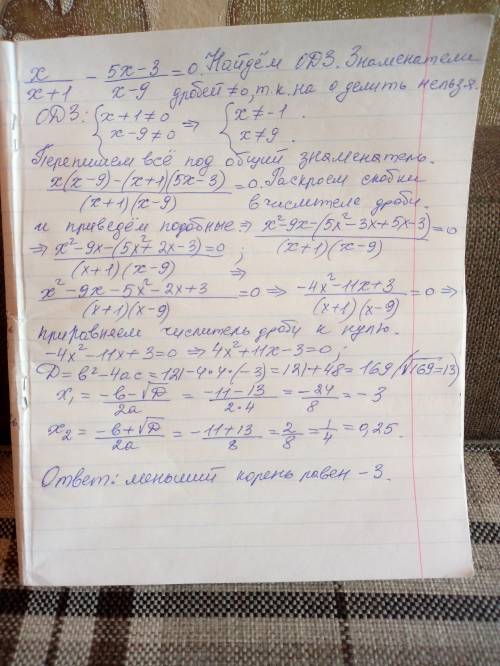 x/(x+1) − (5x−3)/(x−9) = 0. Найдём ОДЗ. Знаменатели
дробей ≠0, т.к. на 0 делить нельзя.
ОДЗ: { x+1≠0 x−9≠0 ⇒ { x≠−1 x≠9 .
Перепишем всё под общий знаменатель.
(x(x−9)−(x+1)(5x−3))/((x+1)(x−9)) = 0. Раскроем скобки
в числителе дроби
и приведём подобные ⇒ (x²−9x−(5x²−3x+5x−3))/((x+1)(x−9)) = 0
⇒ (x²−9x−(5x²+2x−3))/((x+1)(x−9)) = 0 ; ⇒
(x²−9x−5x²−2x+3)/((x+1)(x−9)) = 0 ⇒ (−4x²−11x+3)/((x+1)(x−9)) = 0 ⇒
приравняем числитель дроби к нулю.
−4x²−11x+3=0 ⇒ 4x²+11x−3=0 ;
D=в²−4ас=121−4·4·(−3)=121+48=169 (√169=13)
x₁ = (−в−√D)/2а = (−11−13)/(2·4) = −24/8 = −3
x₂ = (−в+√D)/2а = (−11+13)/8 = 2/8 = 1/4 = 0,25.
Ответ: меньший корень равен −3.